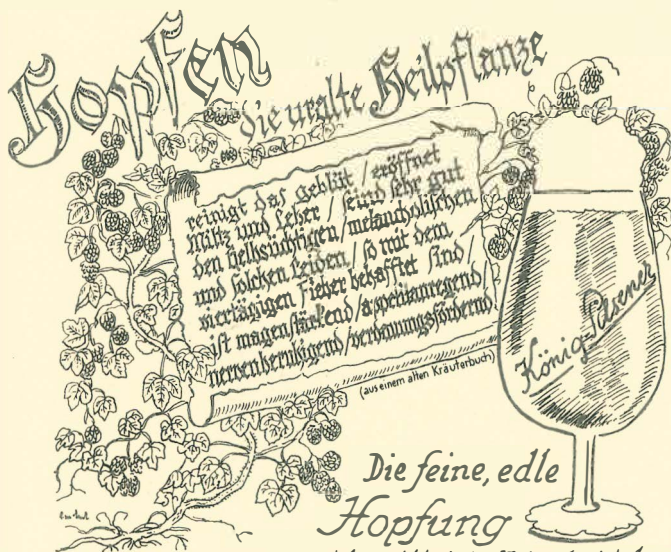 Hopfen
die uralte Heilpflanze
reinigt das Geblüt / eröffnet
Miltz und Leber / seind sehr gut
den gellsüchtigen / melancholischen
und solchen Leiden / so mit dem
viertägigen Fieber behafftet sind /
ist magenstärkend / appetitanregend /
nervenberuhigend / verdauungsfördernd
(aus einem alten Kräuterbuch)
König-Pilsener
Die feine, edle
Hopfung